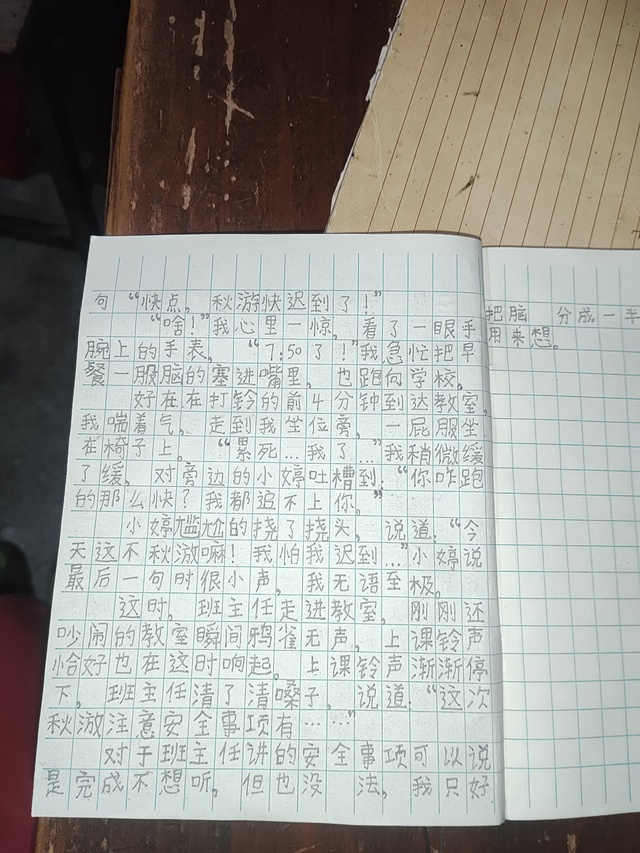 句“快点，秋游快迟到了！”
“啥！”我心里一惊，看了一眼手
腕上的手表，“7:50了！”我急忙把早
餐一股脑的塞进嘴里，也跑向学校。
好在在打铃的前4分钟到达教室，
我喘着气，走到我坐位旁，一屁股坐
在椅子上。“累死…我了…”我稍微缓
了缓，对旁边的小婷吐槽到：“你咋跑
的那么快？我都追不上你。”
小婷尴尬的挠了挠头，说道：“今
天这不秋游嘛！我怕我迟到…”小婷说
最后一句时很小声，我无语至极。
这时，班主任走进教室，刚刚还
吵闹的教室瞬间鸦雀无声，上课铃声
恰好也在这时响起。上课铃声渐渐停
下，班主任清了清嗓子，说道：“这次
秋游注意安全事项有……”
对于班主任讲的安全事项可以说
是完成不想听，但也没法，我只好
把脑 分成一半
用来想。